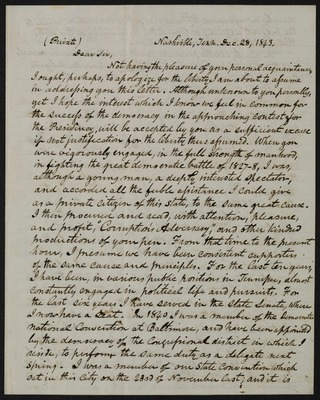 (Private) Nashville, Tenn. Dec. 28, 1843.
Dear Sir,
Not having the pleasure of your personal acquaintance,
I ought, perhaps, to apologize for the liberty I am about to assume
in addressing you this letter. Although unknown to you personally,
yet I hope the interest which I know we feel in common for
the success of the democracy in the approaching contest for
the Presidency, will be accepted by you as a sufficient excuse
if not justification for the liberty thus assumed. When you
were vigorously engaged, in the full strength of manhood,
in fighting the great democratic battle of 1827-8, I was,
although a young man, a deeply interested spectator,
and accorded all the feeble assistance I could give
as a private citizen of this State, to the same great cause.
I then procured and read, with attention, pleasure,
and profit, "Corruption's Adversary," and other kindred
productions of your pen. From that time to the present
hour, I presume we have been consistent supporters
of the same cause and principles. For the last ten years,
I have been, in various public positions in Tennessee, almost
constantly engaged in political life and pursuits. For
the last six years I have served in the State Senate, where
I now have a seat. In 1840 I was a member of the Democratic
national Convention at Baltimore, and have been appointed
by the democracy of the Congressional district in which I
reside, to perform the same duty as a delegate next
Spring. I was a member of our State Convention which
sat in this city on the 23rd of November last, and it is